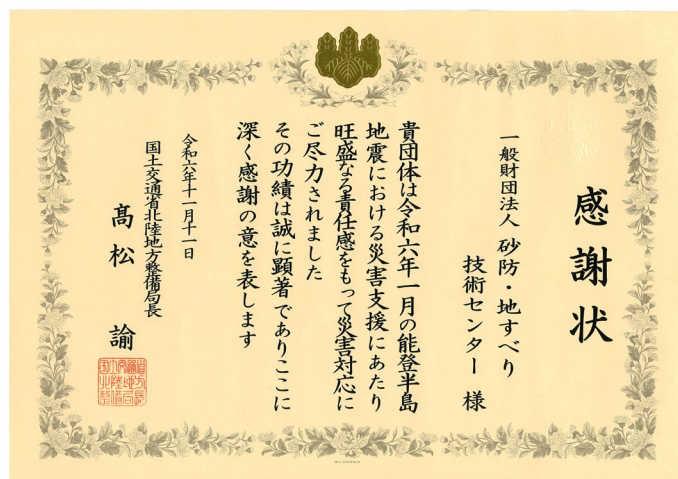 感謝状
一般財団法人 砂防・地すべり
技術センター 様
貴団体は令和六年一月の能登半島
地震における災害支援にあたり
旺盛なる責任感をもって災害対応に
ご尽力されました
その功績は誠に顕著でありここに
深く感謝の意を表します
令和六年十一月十一日
国土交通省北陸地方整備局長
髙松 諭